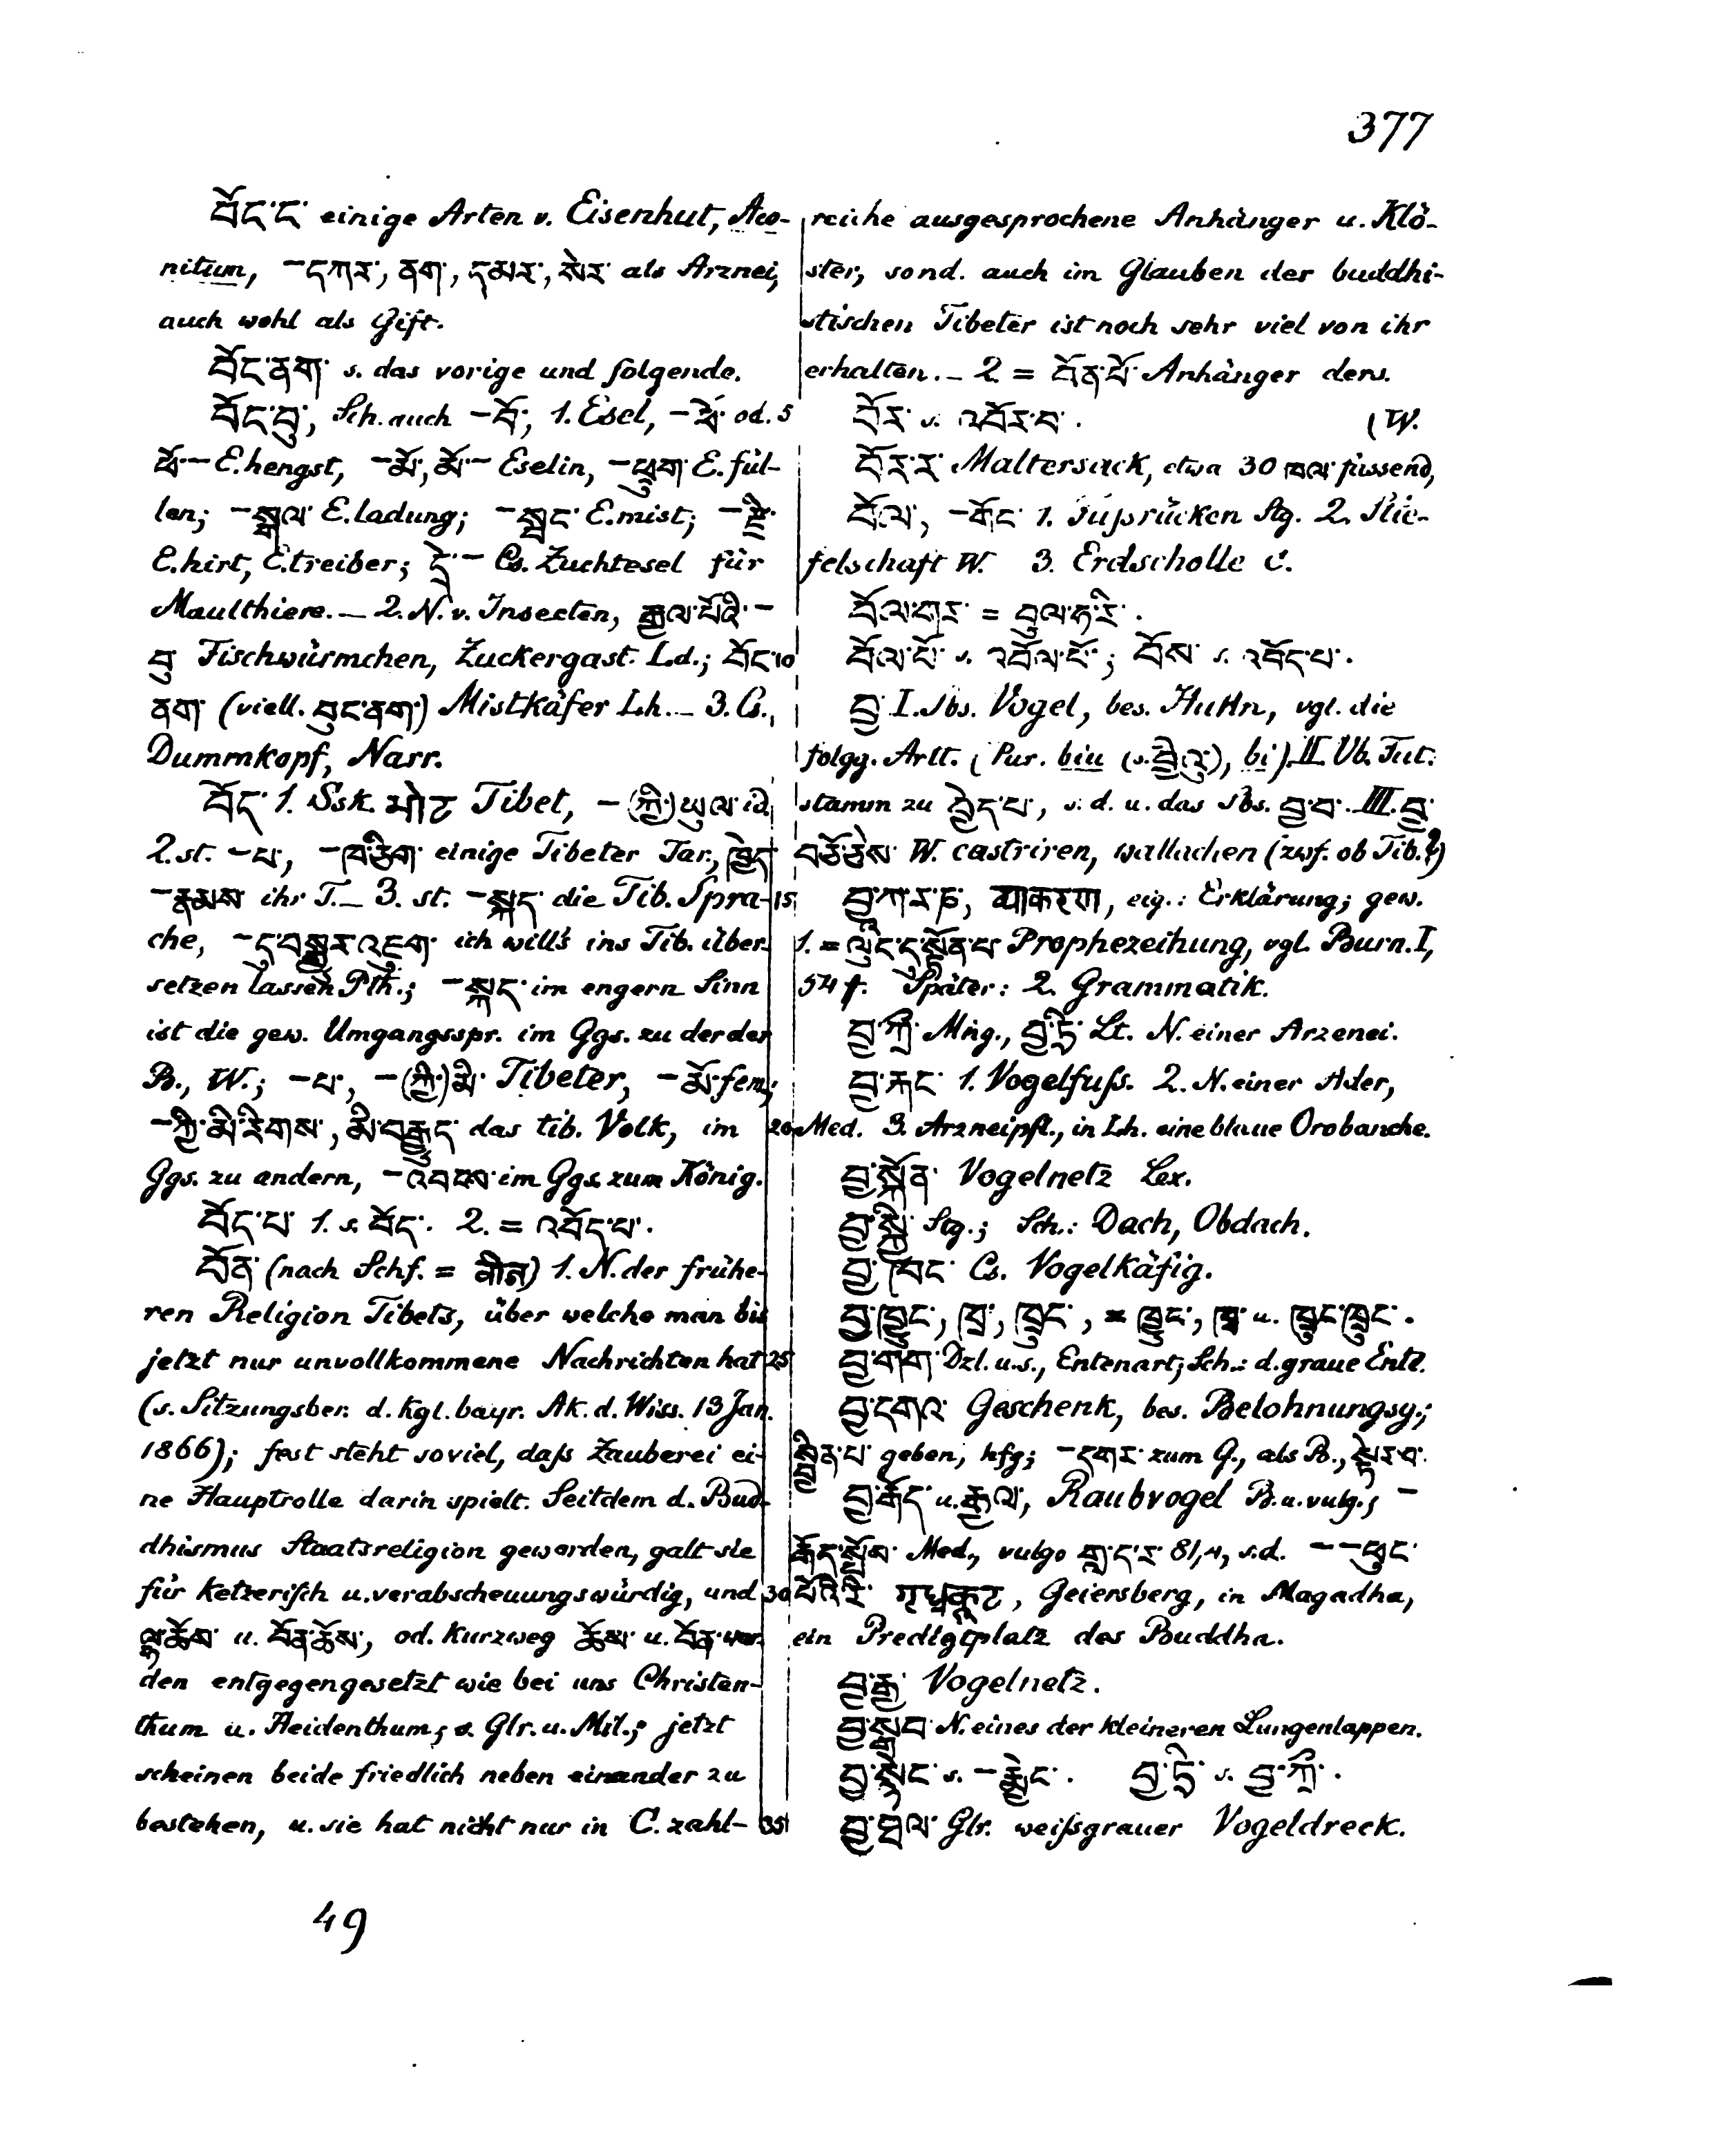 377
བོང་ང་ einige Arten v. Eisenhut, Aco-
nitum, –དཀར་, ནག་, དམར་, སེར་ als Arznei,
auch wohl als Gift.
བོང་ནག་ s. das vorige und folgende.
བོང་བུ་, Sch. auch –བོ་, 1. Esel, –ཕོ་ od. 5
ཕོ་– E.hengst, –མོ་, མོ་– Eselin, –ཕྲུག་ E.fül-
len; –སྒལ་ E.ladung; –སྦང་ E.mist; –རྫི་
E.hirt, E.treiber; དྲེ་– Cs. Zuchtesel für
Maulthiere. – 2. N. v. Insecten, རྒྱལ་པོའི་–
བུ་ Fischwürmchen, Zuckergast. Ld.; བོང་ 10
ནག་ (viell. བུང་ནག་) Mistkäfer Lh. – 3. Cs.,
Dummkopf, Narr.
བོད་ 1. Ssk. भोट Tibet, –(ཀྱི་)ཡུལ་ id.
2. st. –པ་, –ཁ་ཅིག་ einige Tibeter Tar., ཁྱེད་
–རྣམས་ ihr T. – 3. st. –སྐད་ die Tib. Spra- 15
che, –དུ་བསྒྱུར་འཇུག་ ich will's ins Tib. über-
setzen lassen Pth.; –སྐད་ im engern Sinn
ist die gew. Umgangsspr. im Ggs. zu der der
B., W.; –པ་, –(ཀྱི་)མི་ Tibeter, –མོ་ fem.;
–ཀྱི་མི་རིགས་, མི་བརྒྱུད་ das tib. Volk, im 20
Ggs. zu andern, –འབངས་ im Ggs. zum König.
བོད་པ་ 1. s. བོད་. 2. = འབོད་པ་.
བོན་ (nach Schf. = ) 1. N. der frühe-
ren Religion Tibets, über welche man bis
jetzt nur unvollkommene Nachrichten hat 25
(s. Sitzungsber. d. kgl. bayr. Ak. d. Wiss. 13 Jan.
1866); fest steht soviel, daſs Zauberei ei-
ne Hauptrolle darin spielt. Seitdem d. Bud-
dhismus Staatsreligion geworden, galt sie
für ketzerisch u. verabscheuungswürdig, und 30
ལྷ་ཆོས་ u. བོན་ཆོས་, od. kurzweg ཆོས་ u. བོན་ wer-
den entgegengesetzt wie bei uns Christen-
thum u. Heidenthum; s. Glr. u. Mil.; jetzt
scheinen beide friedlich neben einander zu
bestehen, u. sie hat nicht nur in C. zahl- 35
reiche ausgesprochene Anhänger u. Klö-
ster, sond. auch im Glauben der buddhi-
stischen Tibeter ist noch sehr viel von ihr
erhalten. – 2 = བོན་པོ་ Anhänger ders.
བོར་ s. འབོར་བ་. (W.
བོར་ར་ Maltersack, etwa 30 ཁལ་ fassend,
བོལ་, –གོང་ 1. Fuſsrücken Stg. 2. Stie-
felschaft W. 3. Erdscholle C.
བོལ་གར་ = བུལ་ཧ་རི་.
བོལ་པོ་ s. འབོལ་པོ་; བོས་ s. འབོད་པ་.
བྱ་ I. Sbs. Vogel, bes. Huhn, vgl. die
folgg. Artt. (Pur. biu (s. བྱིའུ་), bi). II. Vb. Fut.
stamm zu བྱེད་པ་, s. d. u. das Sbs. བྱ་བ་. III. བྱ་
བཅོ་ཅེས་ W. castriren, wallachen (zwf. ob Tib.?)
བྱ་ཀ་ར་ཎ་, व्याकरण, eig.: Erklärung; gew.
1. = ལུང་དུ་སྟོན་པ་ Prophezeihung, vgl. Burn. I,
54 f. Später: 2. Grammatik.
བྱ་ཀྲི་ Mng., བྱ་ཏི་ Lt. N. einer Arzenei.
བྱ་རྐང་ 1. Vogelfuſs. 2. N. einer Ader,
Med. 3. Arzneipfl., in Lh. eine blaue Orobanche.
བྱ་སྐྱོན་ Vogelnetz Lex.
བྱ་སྐྱི་ Stg.; Sch.: Dach, Obdach.
བྱ་ཁང་ Cs. Vogelkäfig.
བྱ་ཁྱུང་, ཁྲ་, ཁྲུང་, = ཁྱུང་, ཁྲ་ u. ཁྲུང་ཁྲུང་.
བྱ་གག་ Dzl. u. s., Entenart; Sch.: d. graue Ente.
བྱ་དགའ་ Geschenk, bes. Belohnungsg.;
སྦྱིན་པ་ geben, hfg; –དགར་ zum G., als B., སྟེར་བ་.
བྱ་རྒོད་ u. རྒྱལ་, Raubvogel B. u. vulg.; –
རྒོད་སྤོས་ Med., vulgo གླ་ད་ར་ 81,4, s.d. – –ཕུང་
པོའི་རི་ गृध्रकूट, Geiersberg, in Magadha,
ein Predigtplatz des Buddha.
བྱ་རྒྱ་ Vogelnetz.
བྱ་སྒྲབ་ N. eines der kleineren Lungenlappen.
བྱ་སྙེང་ s. –རྨྱེང་. བྱ་ཏི་ s. བྱ་ཀྲི་.
བྱ་ཐལ་ Glr. weiſsgrauer Vogeldreck.
49